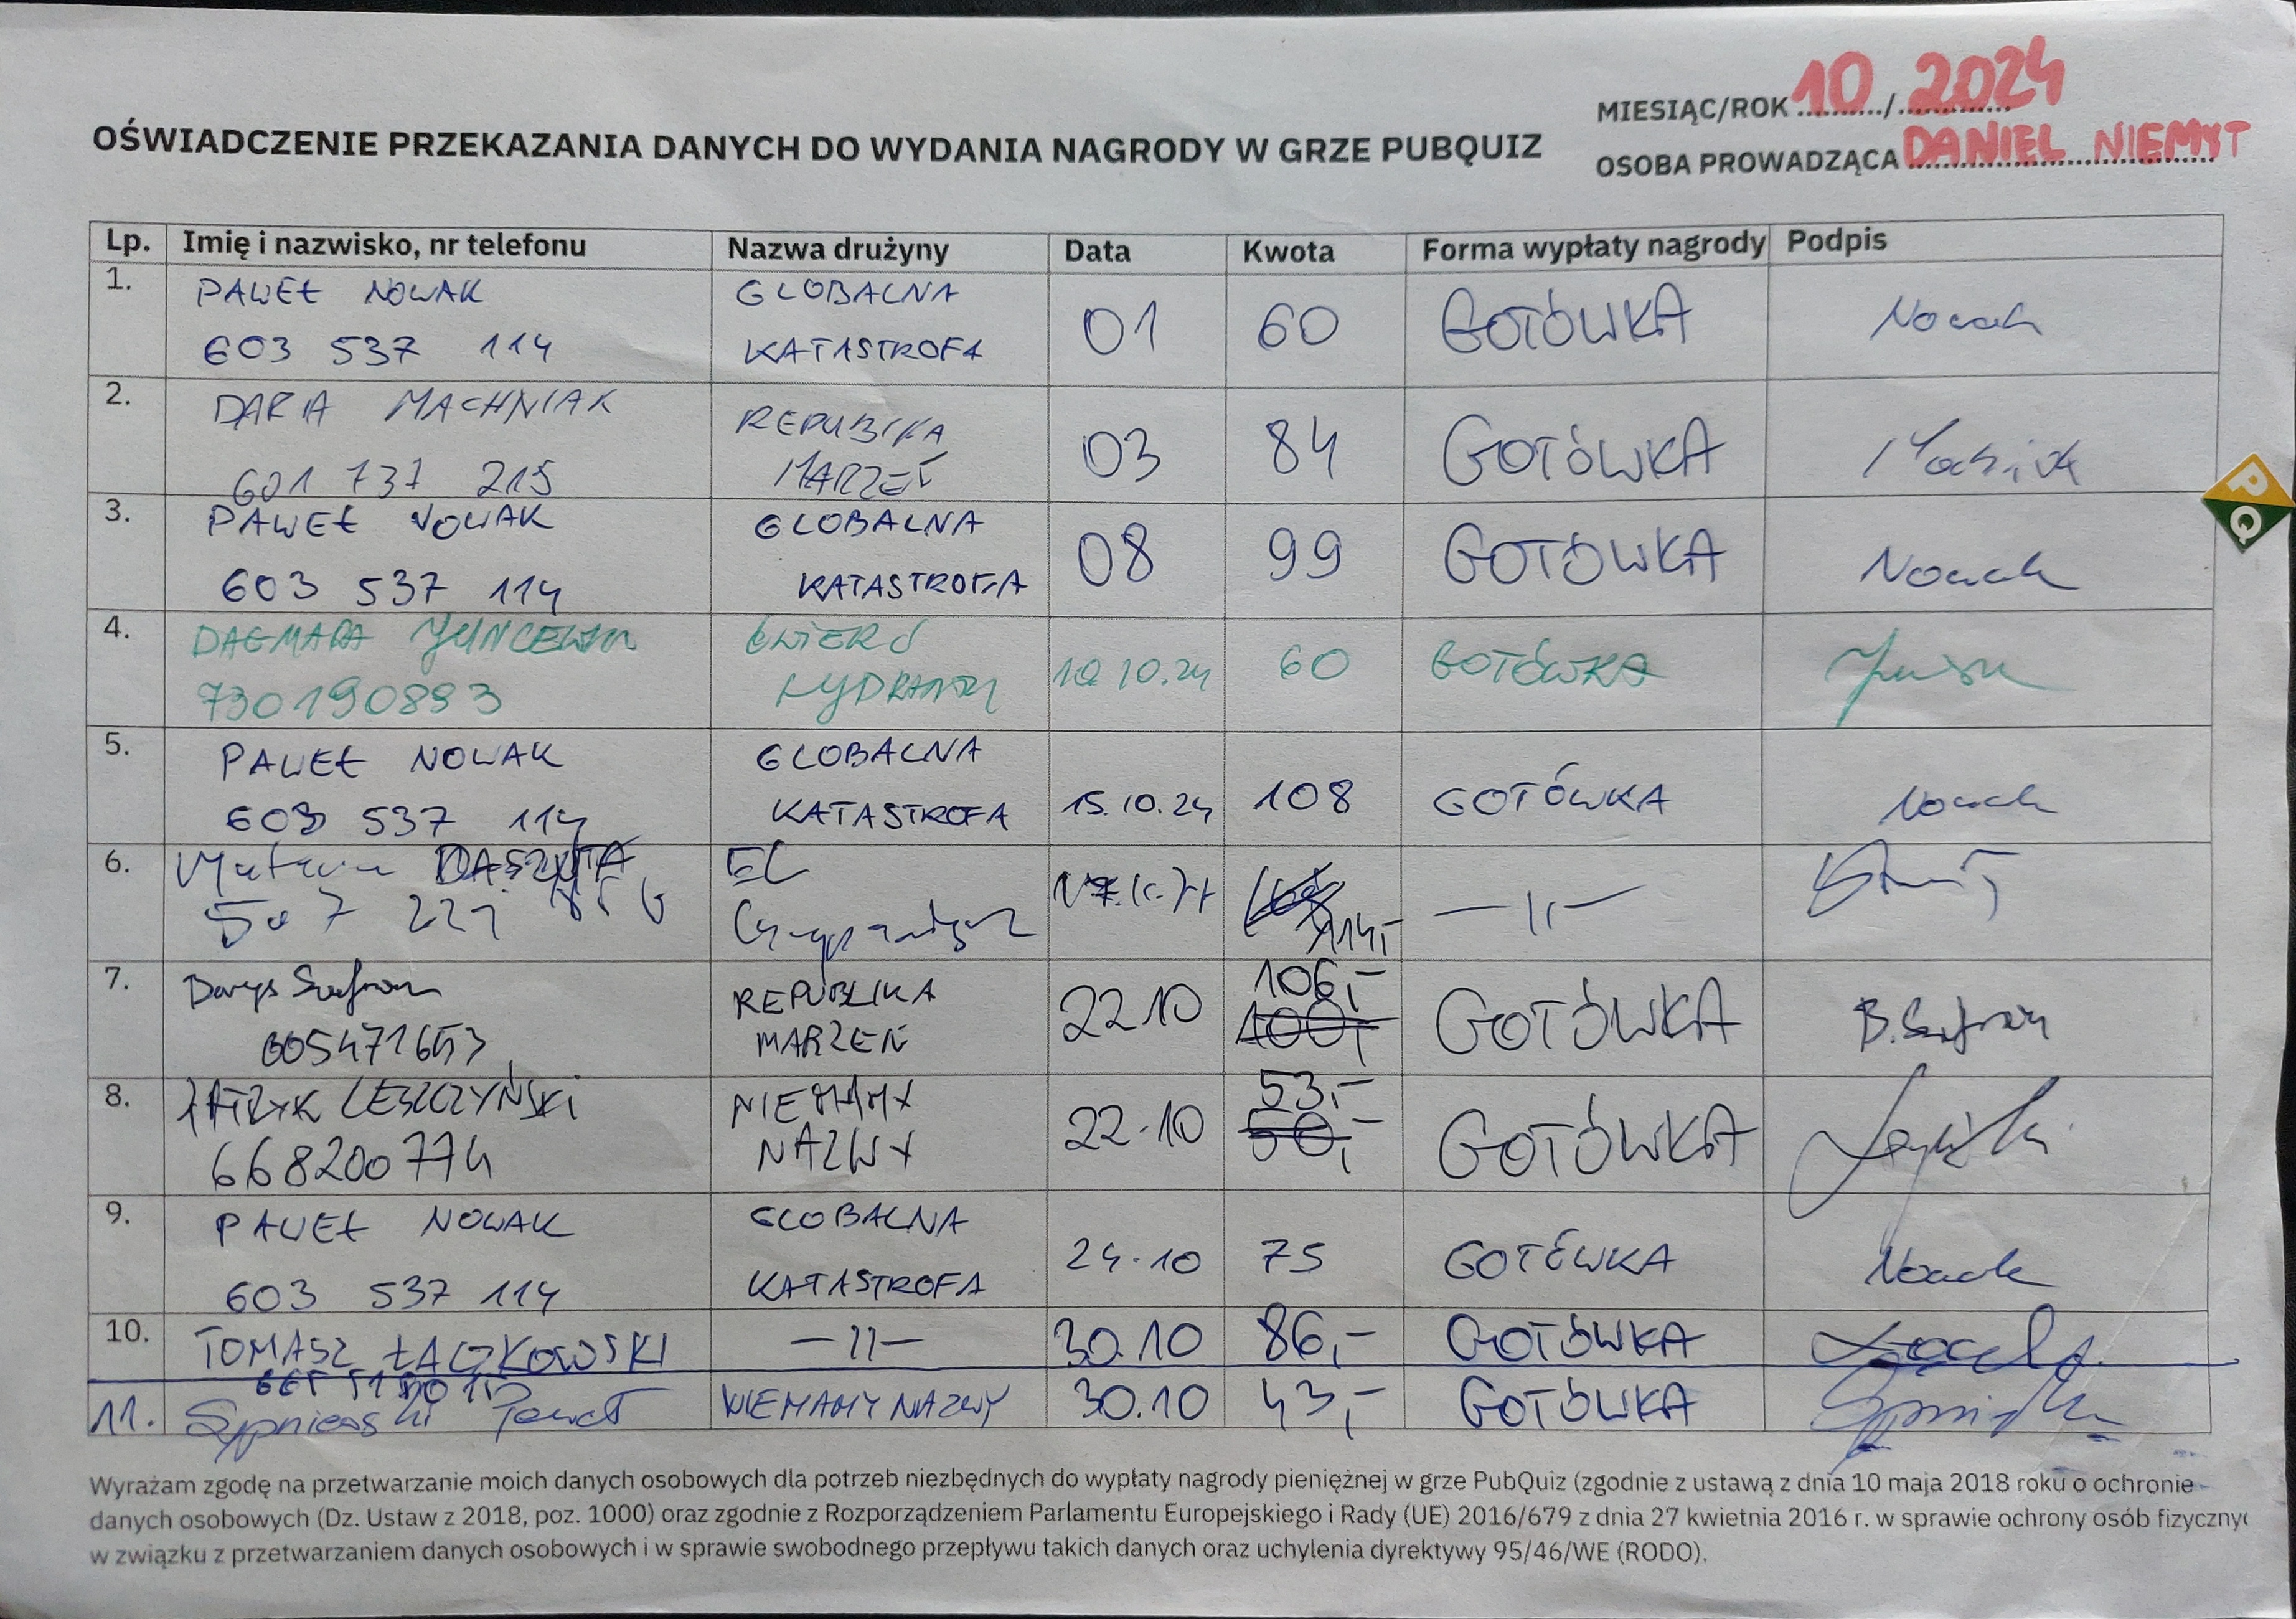 MIESIĄC/ROK 10 / 2024
OŚWIADCZENIE PRZEKAZANIA DANYCH DO WYDANIA NAGRODY W GRZE PUBQUIZ
OSOBA PROWADZĄCA DANIEL NIEMYT
Lp. Imię i nazwisko, nr telefonu Nazwa drużyny Data Kwota Forma wypłaty nagrody Podpis
1. PAWEŁ NOWAK GLOBALNA 01 60 GOTÓWKA Nowak
603 537 114 KATASTROFA
2. DARIA MACHNIAK REPUBLIKA 03 84 GOTÓWKA
601 737 215 MARZEŃ
3. PAWEŁ NOWAK GLOBALNA 08 99 GOTÓWKA Nowak
603 537 114 KATASTROFA
4. DAGMARA ĆWIERĆ 10.10.24 60 GOTÓWKA
730190893 HYDRANTU
5. PAWEŁ NOWAK GLOBALNA 15.10.24 108 GOTÓWKA Nowak
603 537 114 KATASTROFA
6. EL 114,- —II—
507 221
7. Borys Szafran REPUBLIKA 22.10 106,- GOTÓWKA B. Szafran
605471653 MARZEŃ 100,-
8. PATRYK LESZCZYŃSKI NIEMAMY 22.10 53,- GOTÓWKA
668200774 NAZWY 50,-
9. PAWEŁ NOWAK GLOBALNA 24.10 75 GOTÓWKA Nowak
603 537 114 KATASTROFA
10. TOMASZ ŁĄCZKOWSKI —II— 30.10 86,- GOTÓWKA
11. Sypniewski Paweł NIEMAMY NAZWY 30.10 43,- GOTÓWKA
PQ
Wyrażam zgodę na przetwarzanie moich danych osobowych dla potrzeb niezbędnych do wypłaty nagrody pieniężnej w grze PubQuiz (zgodnie z ustawą z dnia 10 maja 2018 roku o ochronie
danych osobowych (Dz. Ustaw z 2018, poz. 1000) oraz zgodnie z Rozporządzeniem Parlamentu Europejskiego i Rady (UE) 2016/679 z dnia 27 kwietnia 2016 r. w sprawie ochrony osób fizyczny
w związku z przetwarzaniem danych osobowych i w sprawie swobodnego przepływu takich danych oraz uchylenia dyrektywy 95/46/WE (RODO).